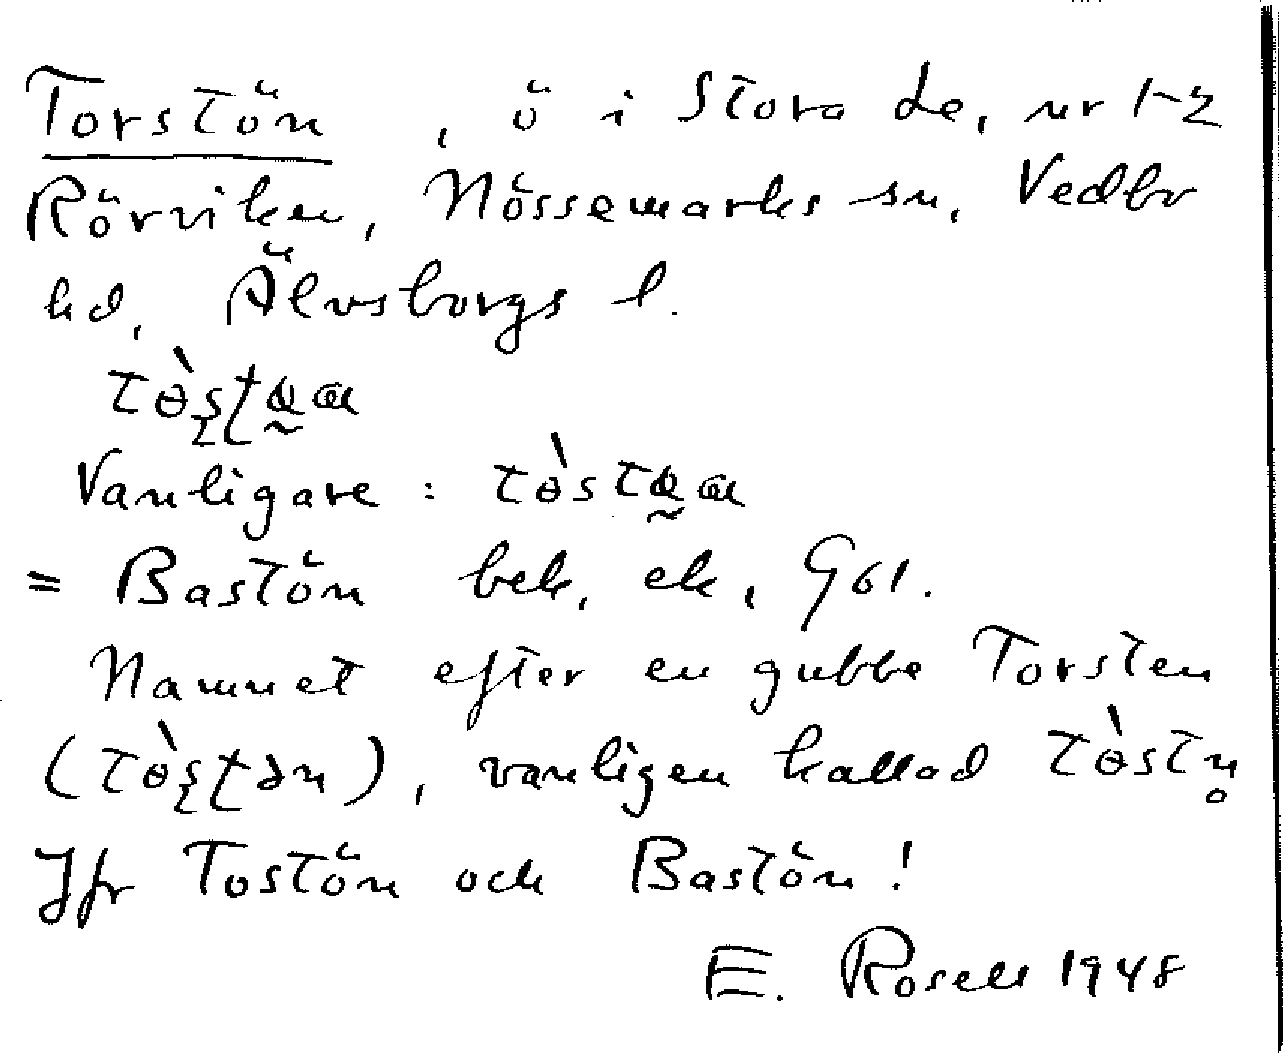 Torstön, ö i Stora Le, nr 1-2
Rörviken, Nössemarks sn, Vedbo
hd, Älvsborgs l.
Vanligare:
= Bastön bek. ek. G61.
Namnet efter en gubbe Torsten
(tɵ̀ʂʈən), vanligen kallad tɵ̀stn̥
Jfr Tostön och Bastön!
E. Rosell 1948